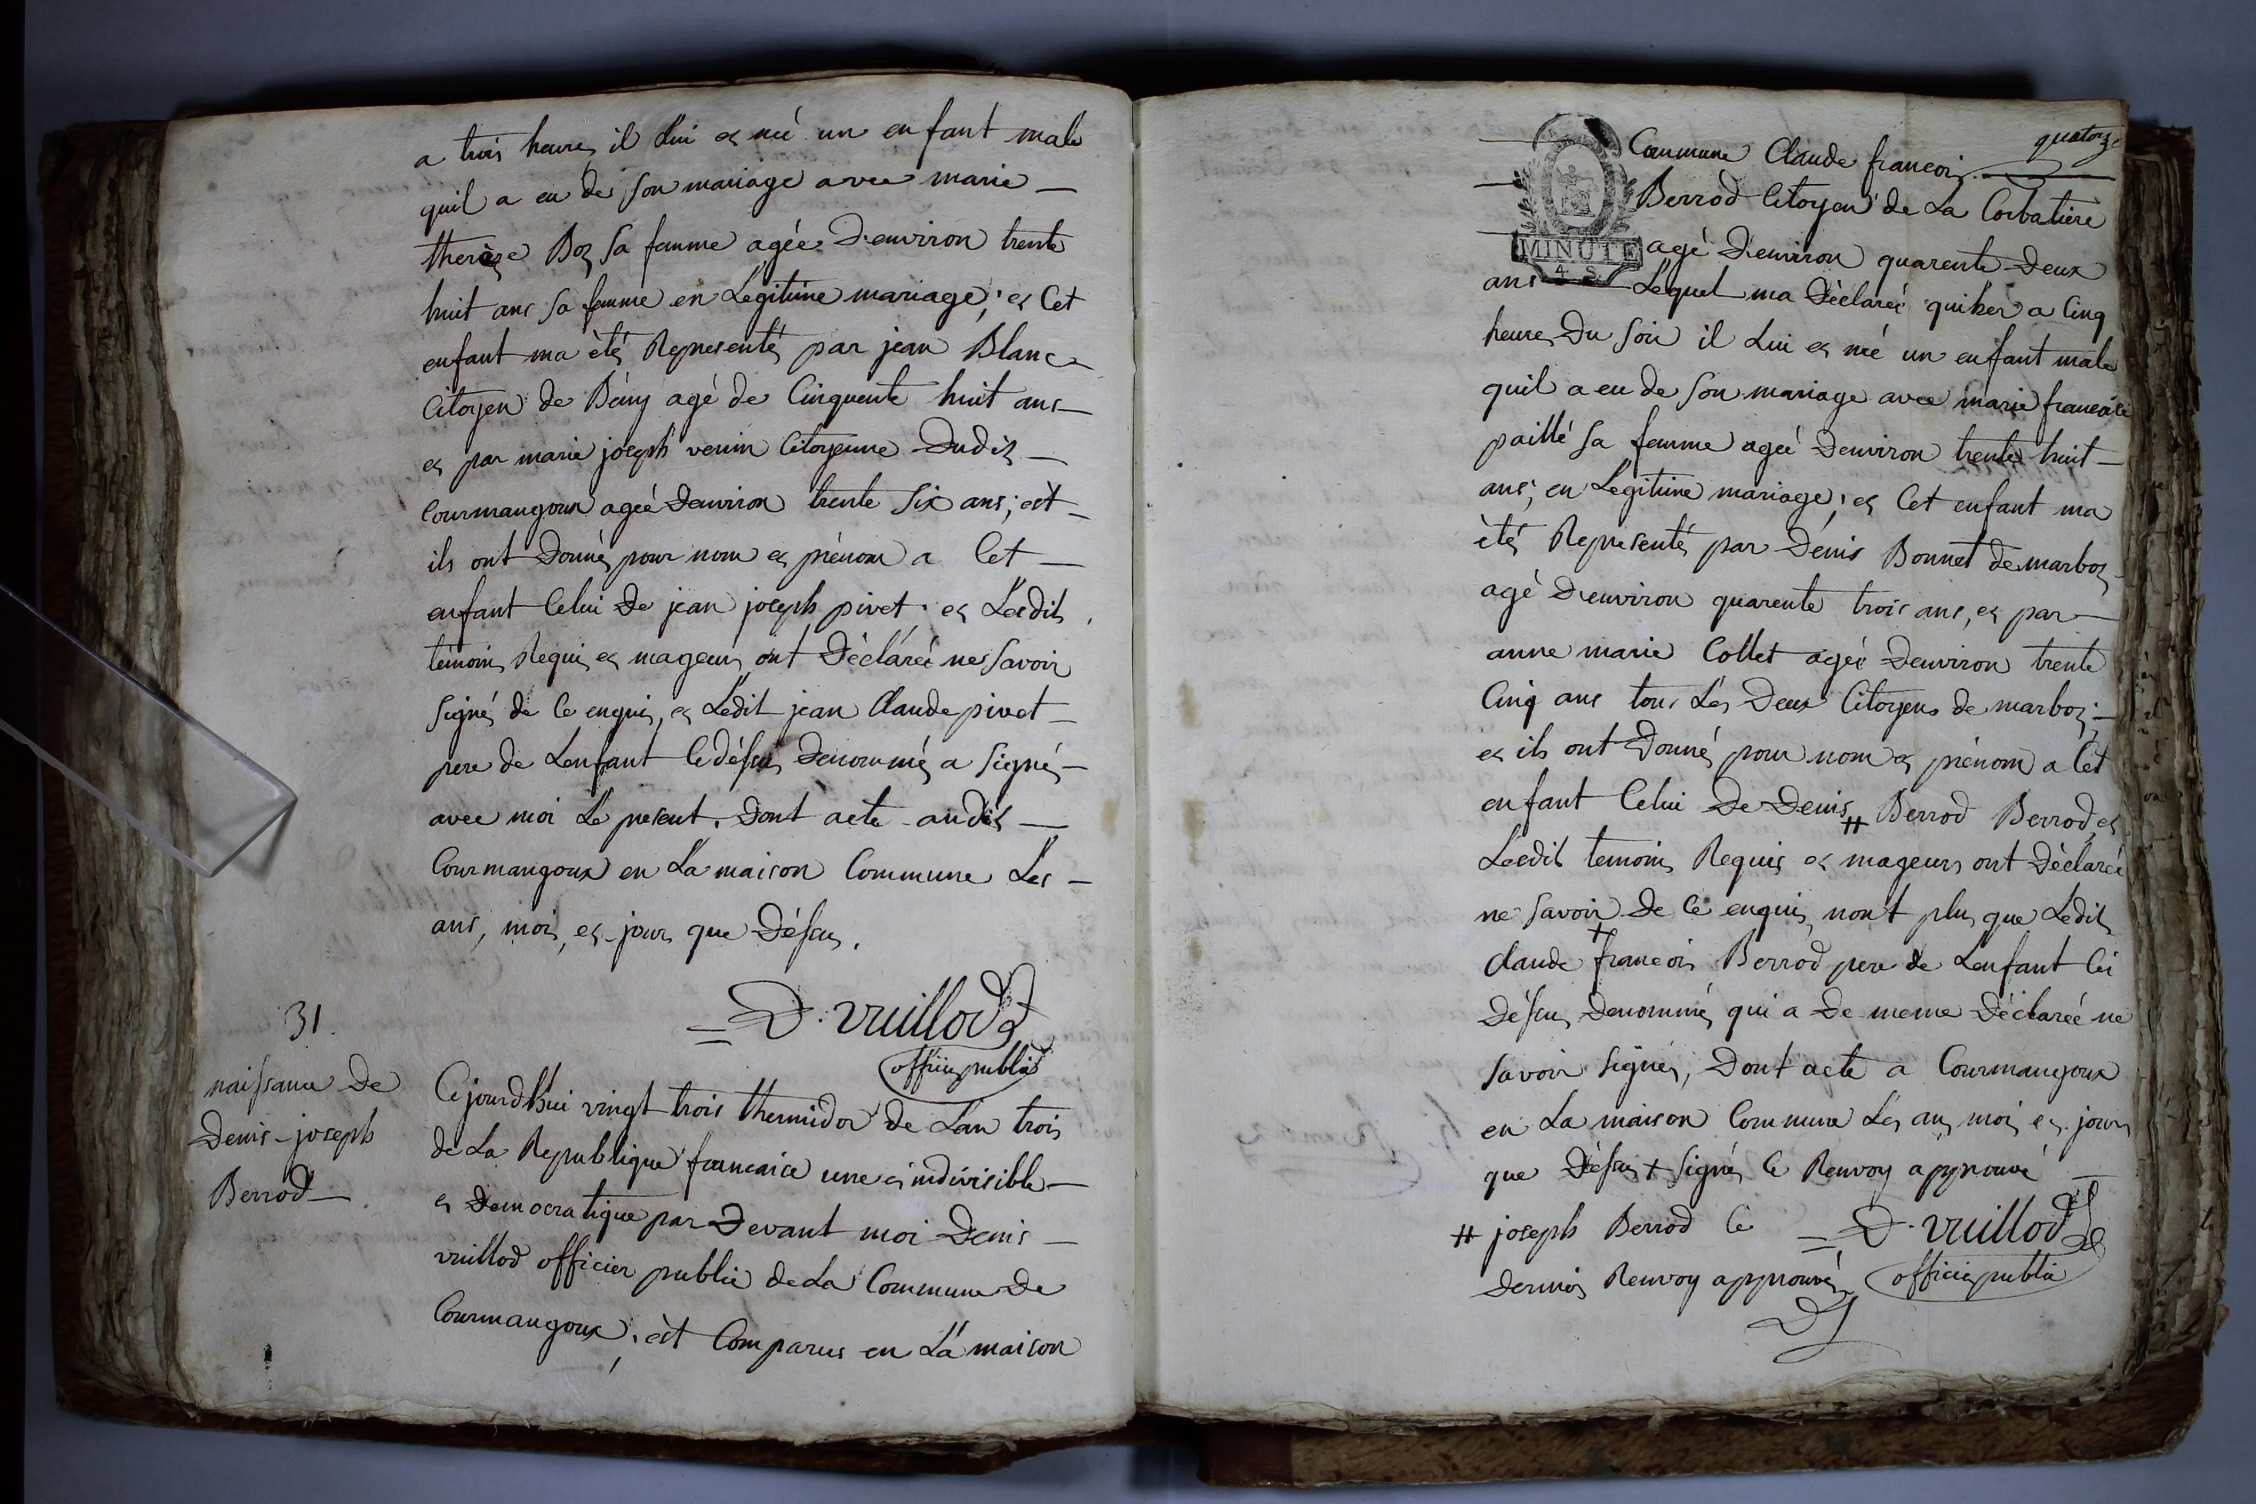 a trois heures il Lui es né un enfant male
quil a eu de son mariage avec marie
therèze Boz sa femme agée D'environ trente
huit ans sa femme en Legitime mariage, es Cet
enfant ma été Representé par jean Blanc
Citoyen de Bény agé de Cinquente huit ans
es par marie joseph venin Citoyenne Dudis
Courmangoux agée Denviron trente six ans; èt
ils ont Donné pour nom es prénom a Cet
enfant Celui De jean joseph pivet; es Lesdits
temoins Requis es mageurs ont Dèclareé ne savoir
signés de Ce enquis, es Ledit jean Claude pivet
pere de Lenfant Ci déssus Denommé a signés
avec moi Le present. Dont acte audis
Courmangoux en La maison Commune Les
ans, mois, es jours que Déssus.
D. vuillod
officier public
31.
naissance De
Denis joseph
Berrod
Cejourdhui vingt trois thermidor de Lan trois
de La Republique francaice une es indivisible
es Democratique par Devant moi Denis
vuillod officier public de La Commune De
Courmangoux, èt Comparus en La maison
quatorze
MINUTE
4. S.
Commune Claude francois
Berrod Citoyen de La Corbatiere
agé D'environ quarente Deux
ans Lequel ma Dèclareé quihier a Cinq
heures Du soir il Lui es né un enfant male
quil a eu de son mariage avec marie francoise
paillé sa femme ageé Denviron trente huit
ans, en Legitime mariage; es Cet enfant ma
èté Representé par Denis Bonnet de marboz
agé D'environ quarente trois ans, es par
anne marie Collet ageé Denviron trente
Cinq ans tous Les Deux Citoyens de marboz;
es ils ont Donné pour nom es prénom a Cet
enfant Celui De Denis # Berrod Berrod, es
Lesdits temoins Requis es mageurs ont Dèclareé
ne savoir + De Ce enquis, nont plus que Ledit
Claude francois Berrod pere de Lenfant Ci
Déssus Denommé qui a De meme Dèclareé ne
savoir signés, Dont acte a Courmangoux
en La maison Commune Les ans mois es jours
que Déssus + signés Ce Renvoy approuvé
# joseph Berrod Ce
Dernier Renvoy approuvé
D. vuillod
officier public